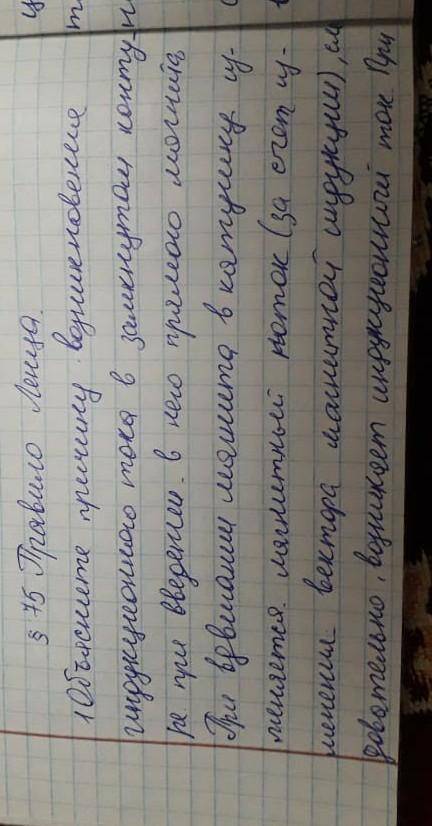 § 75 Правило Ленца.
1 Объясните причину возникновения
индукционного тока в замкнутом конту-
ре при введении в него прямого магнита
При вдвигании магнита в катушку из-
меняется магнитный поток (за счет из-
менения вектора магнитной индукции), сле
довательно, возникает индукционный ток При